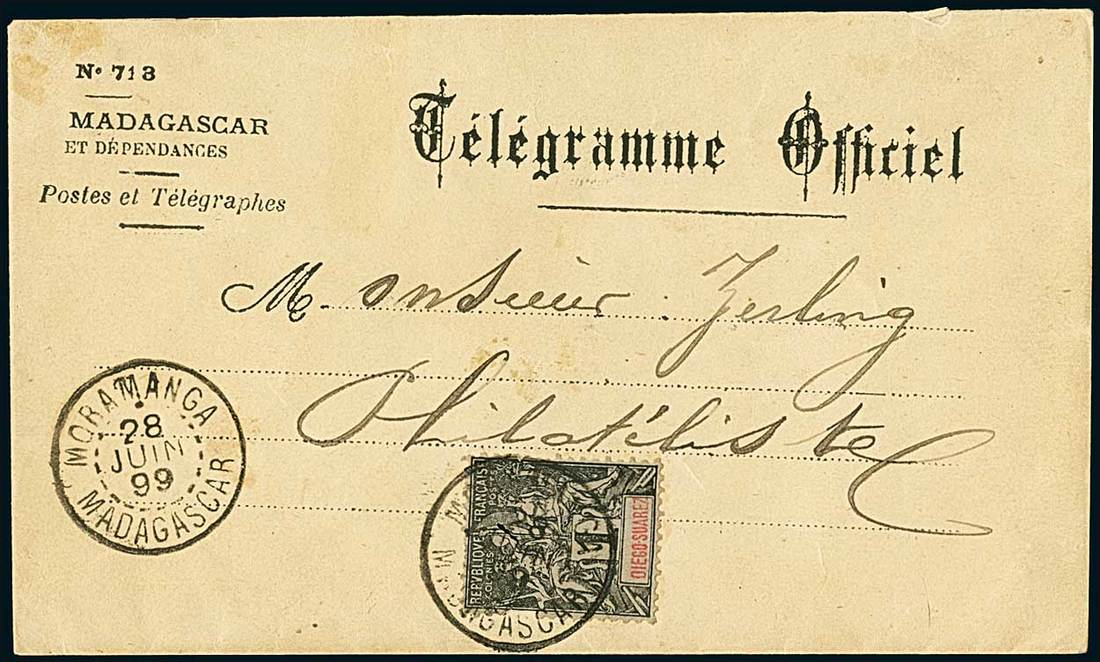 Nº 713
MADAGASCAR
ET DÉPENDANCES
Postes et Télégraphes
Télégramme Officiel
Monsieur Zerling
Philatéliste
MORAMANGA
28
JUIN
99
MADAGASCAR
REPUBLIQUE FRANCAISE
COLONIES
POSTES
1
DIEGO-SUAREZ
MADAGASCAR